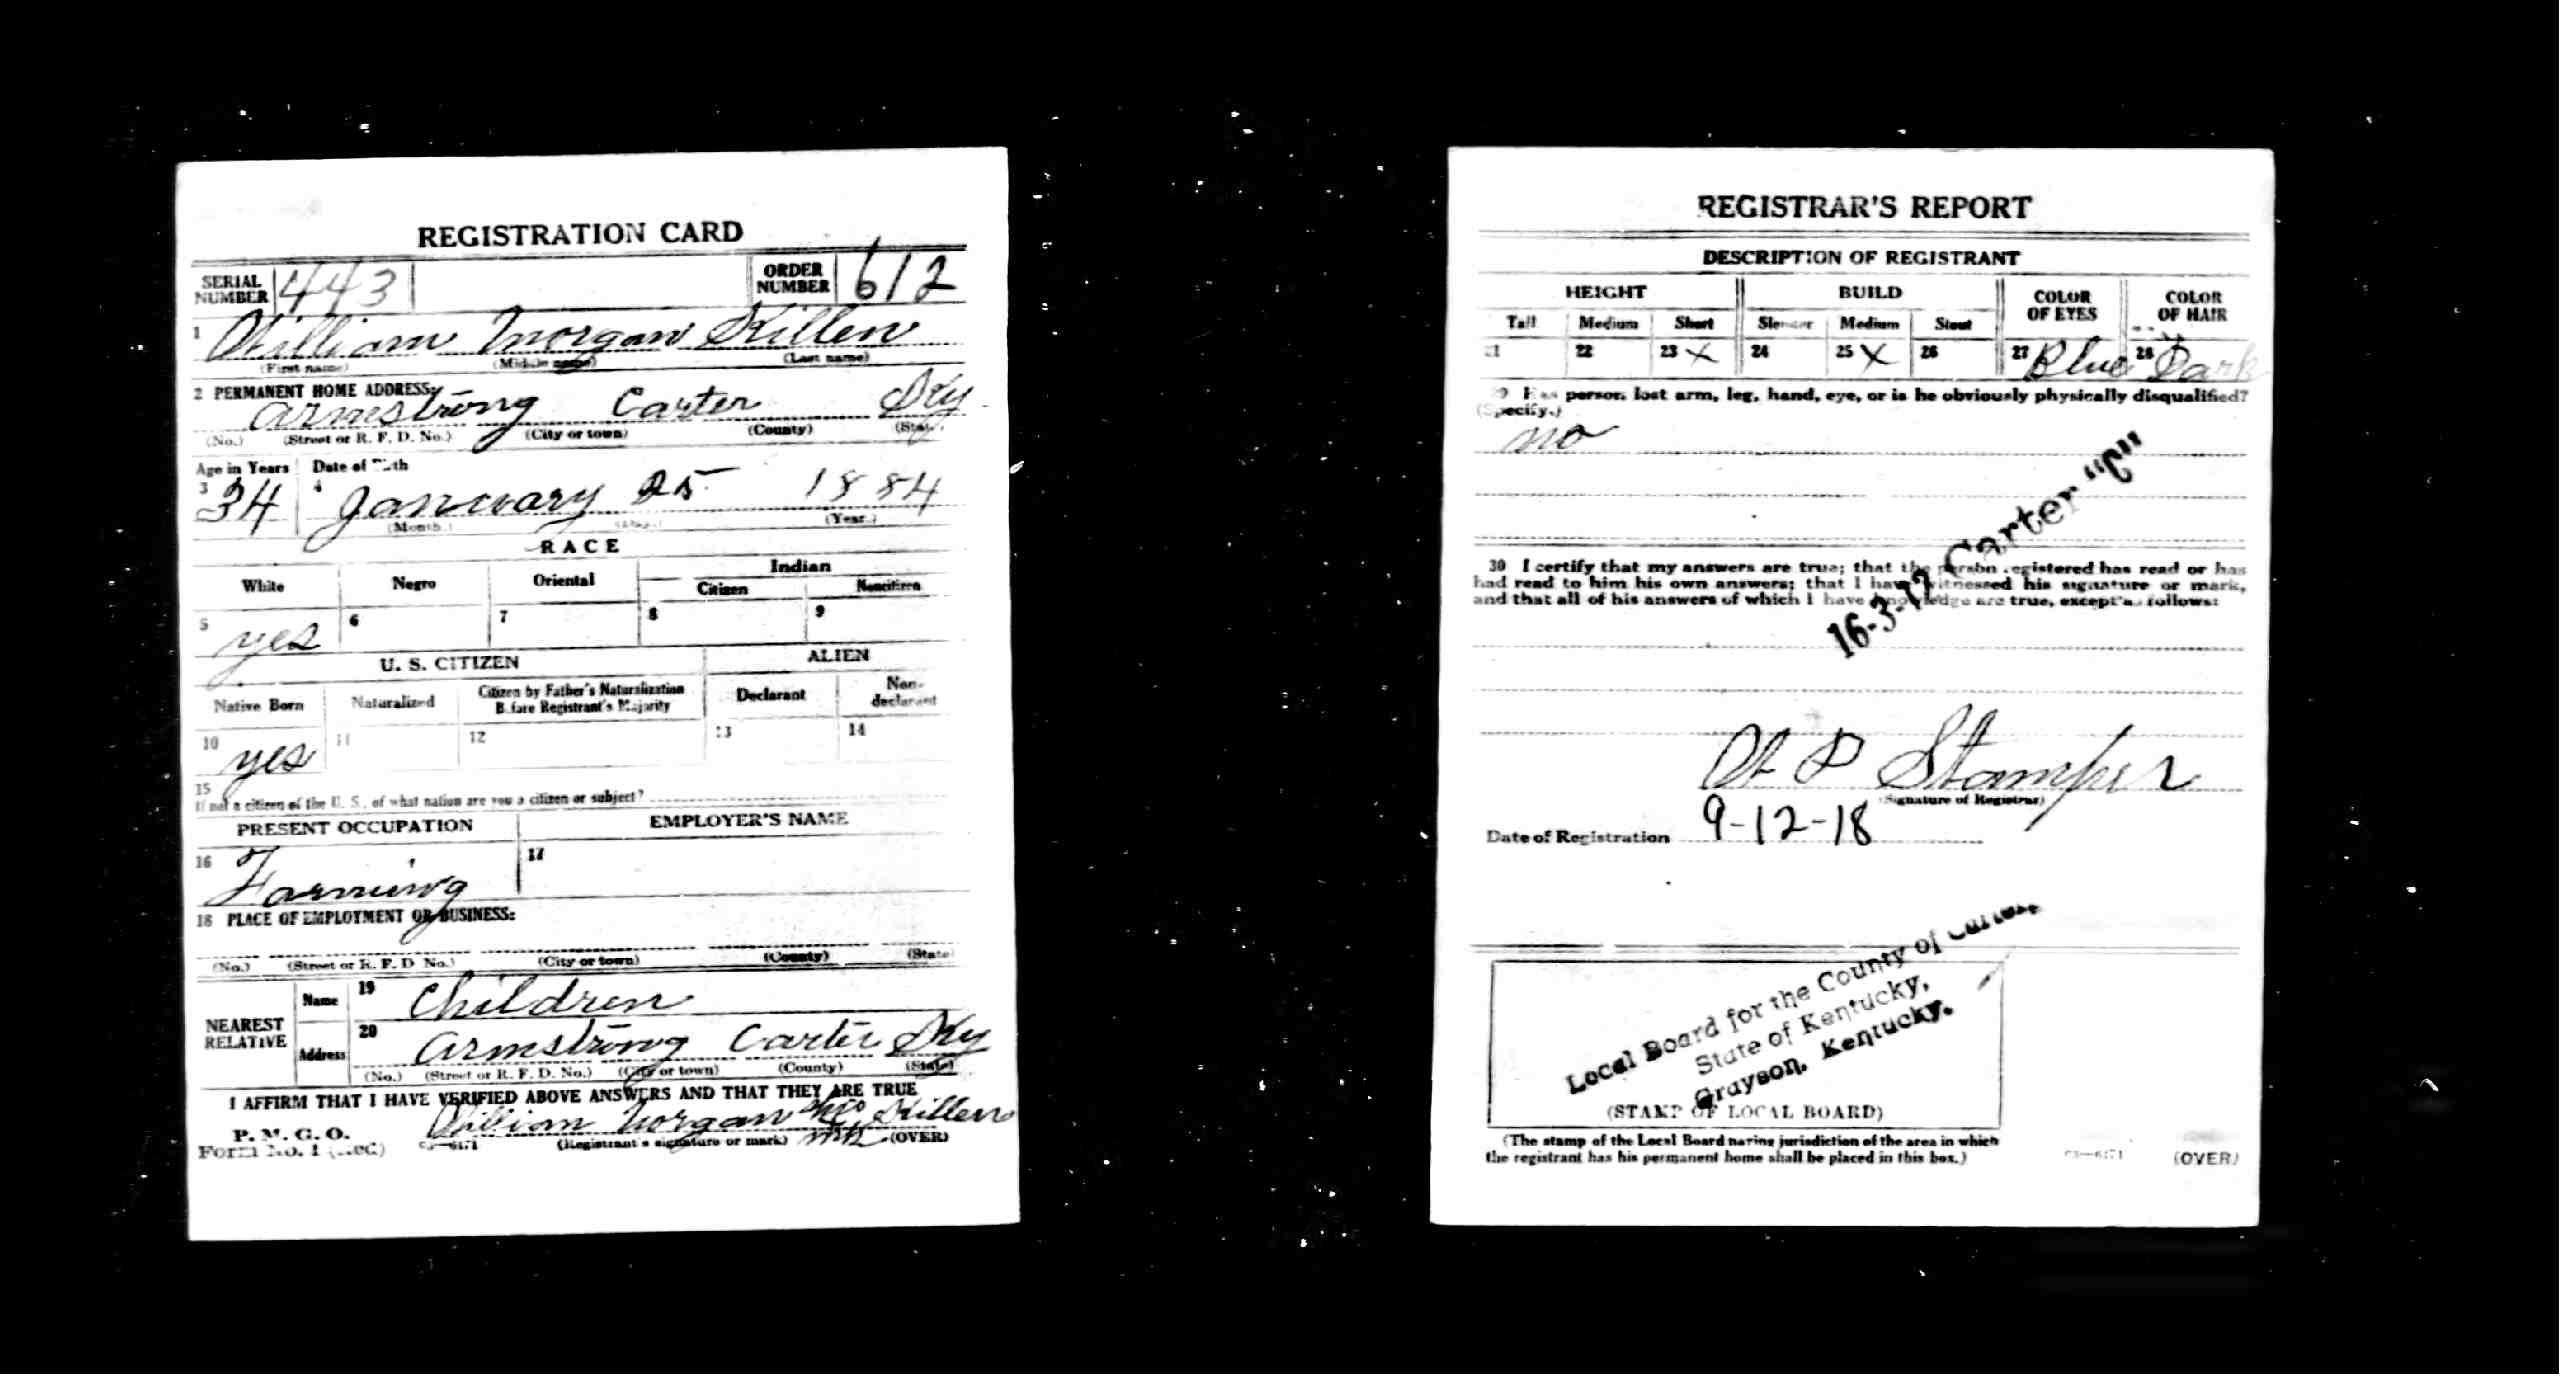 REGISTRATION CARD
SERIAL NUMBER 443 ORDER NUMBER 612
1 William Morgan Killen
(First name) (Middle name) (Last name)
2 PERMANENT HOME ADDRESS:
Armstrong Carter Ky
(No.) (Street or R. F. D. No.) (City or town) (County) (State)
Age in Years Date of Birth
3 34 4 January 25 1884
(Month.) (Day.) (Year.)
RACE
White Negro Oriental Indian
Citizen Noncitizen
5 yes 6 7 8 9
U. S. CITIZEN ALIEN
Native Born Naturalized Citizen by Father's Naturalization Before Registrant's Majority Declarant Non-declarant
10 yes 11 12 13 14
15
If not a citizen of the U. S., of what nation are you a citizen or subject?
PRESENT OCCUPATION EMPLOYER'S NAME
16 Farming 17
18 PLACE OF EMPLOYMENT OR BUSINESS:
(No.) (Street or R. F. D. No.) (City or town) (County) (State)
NEAREST RELATIVE Name 19 Children
Address 20 Armstrong Carter Ky
(No.) (Street or R. F. D. No.) (City or town) (County) (State)
I AFFIRM THAT I HAVE VERIFIED ABOVE ANSWERS AND THAT THEY ARE TRUE
William Morgan his Killen
P. M. G. O.
Form No. 1 (Red) 03—6171 (Registrant's signature or mark) mk (OVER)
REGISTRAR'S REPORT
DESCRIPTION OF REGISTRANT
HEIGHT BUILD COLOR OF EYES COLOR OF HAIR
Tall Medium Short Slender Medium Stout
21 22 23 X 24 25 X 26 27 Blue 28 Dark
29 Has person lost arm, leg, hand, eye, or is he obviously physically disqualified?
(Specify.)
no
16-3-12 Carter "C"
30 I certify that my answers are true; that the person registered has read or has
had read to him his own answers; that I have witnessed his signature or mark,
and that all of his answers of which I have knowledge are true, except as follows:
P Stamper
(Signature of Registrar)
Date of Registration 9-12-18
Local Board for the County of Carter,
State of Kentucky,
Grayson, Kentucky.
(STAMP OF LOCAL BOARD)
(The stamp of the Local Board having jurisdiction of the area in which
the registrant has his permanent home shall be placed in this box.)
03—6171 (OVER)